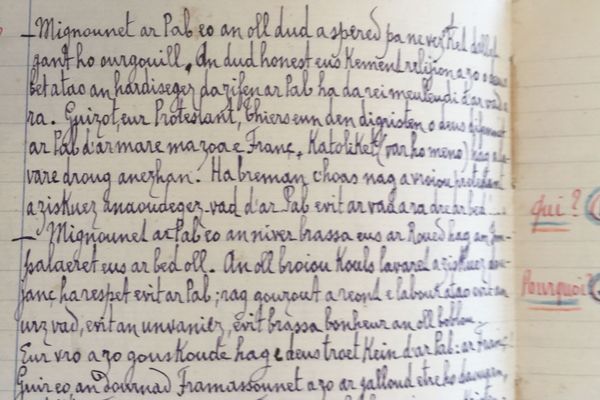 _ Mignounet ar Pab eo an oll dud a spered pa ne vez ket dallet
gant ho ourgouill. An dud honest eus kement relijion a zo o deus
bet atao an hardisegez da zifen ar Pab ha da rei meuleudi d'ar vad a
ra. Guizot, eur Protestant, Thiers eun den digristen o deus difennet
ar Pab d'ar mare ma zoa e Franç. Katoliket (var ho meno) hag a la-
vare droug anezhan. Ha breman choas nag a vroiou protestant
a ziskuez anaoudegez-vad d'ar Pab evit ar vad a ra dre ar bed ....
_ Mignounet ar Pab eo an niver brassa eus ar Roued hag an Im-
palaeret eus ar bed oll. An oll broiou kouls lavaret a ziskuez dou-
janç ha respet evit ar Pab; rag gouzout a reont e labour atao evit an
urz vad, evit an unvaniez, evit brassa bonheur an oll boblou.
Eur vro a zo gouskoude hag e deus troet kein d'ar Pab: ar Franç.
Guir eo an dournad Framassounet a zo ar galloud etre ho daouarn,
qui?
Pourquoi?